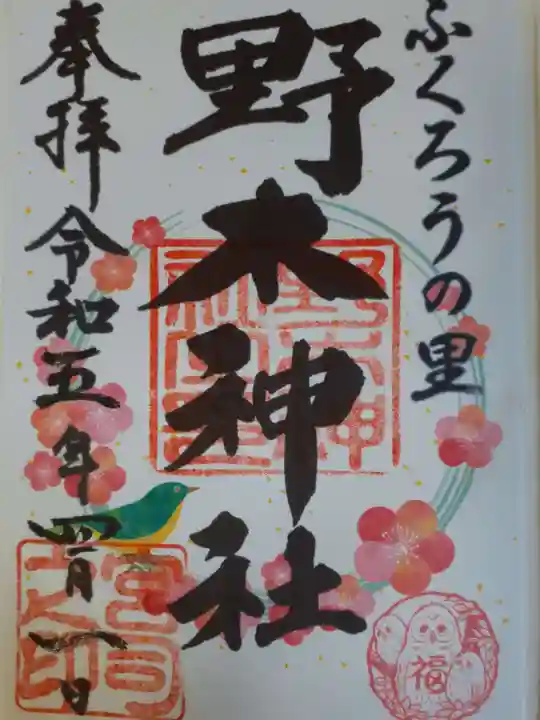 ふくろうの里
野木神社
奉拝
令和五年四月一日
野木神社
宮司之印
福